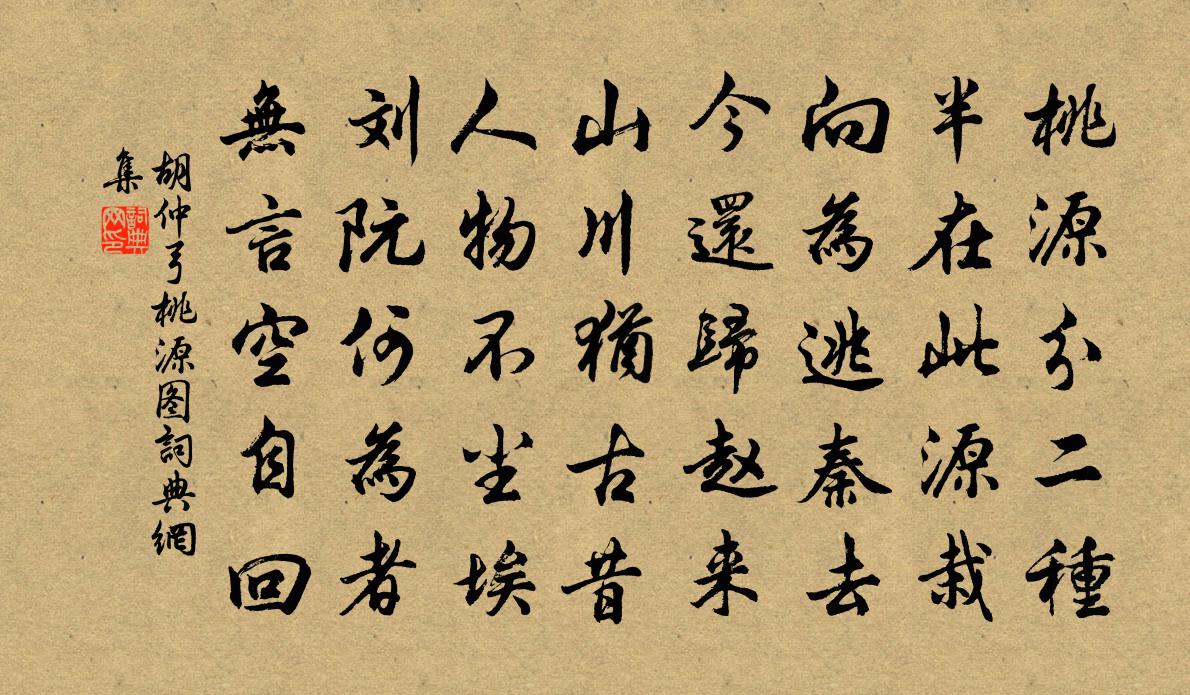 桃源分二種
半在此源栽
向為逃秦去
今還歸赵来
山川猶古昔
人物不尘埃
刘阮何為者
無言空自回
胡仲弓桃源图詞典網
集
詞典
网印